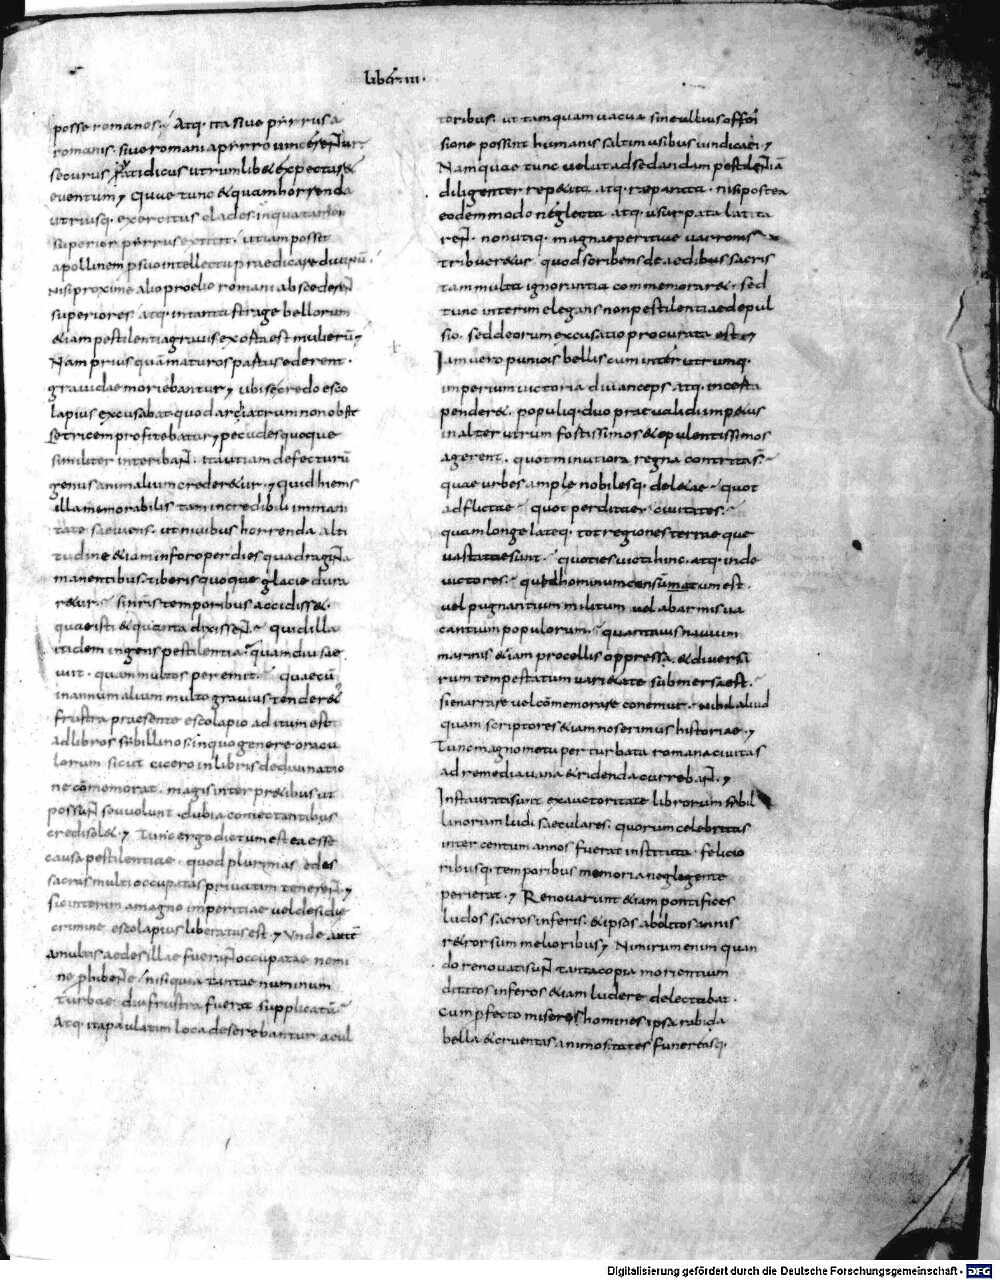 liber·iii·
posse romanos· Atq· ita siue pyrrus a
romanis· siue romani a pyrro uincerent᷒
securus fatidicus utrum lib& expectar&
euentum· Quae tunc & quam horrenda
utriusq· exercitus clades· in qua tamen
superior pyrrus extitit· ut iam posset
apollinem p suo intellectu praedicare diuinū·
nisi proxime alio proelio romani abscederent
superiores· atq· in tanta strage bellorum
&iam pestilentia grauis exorta est mulierū
Nam prius quā maturos partus ederent·
grauidae moriebantur· ubi se credo esco
lapius excusabat quod archiatrum non obst&
setricem profitebatur· pecudes quoque
similiter interibant· ita ut iam defecturū
genus animalium creder&ur· quid hiems
illa memorabilis tam incredibili inmani
tate saeuiens· ut niuibus horrenda alti
tudine &iam in foro per dies quadraginta
manentibus· tiberis quoque glacie dura
r&ur· si nr̄is temporibus accidiss&·
quae isti & quanta dixissent· quid illa
itidem ingens pestilentia· quamdiu sae
uiit· quam multos peremit· quae cū
in annum alium multo grauius tender&
frustra praesente escolapio aditum est
ad libros sybillinos· in quo genere oracu
lorum sicut cicero in libris de diuinatio
ne cōmemorat· magis interpr&ibus ut
possunt seu uolunt· dubia coniectantibus
credi sol&· Tunc ergo dictum est ea esse
causa pestilentiae· quod plurimas edes
sacras multi occupatas priuatim tenerent·
sic interim a magno imperitiae uel desidie
crimine escolapius liberatus est· Unde autē
a multis aedes illae fuerant occupatae nemi
ne phibente· nisi quia tantae numinum
turbae diu frustra fuerat supplicatū
Atq· ita paulatim loca deserebantur a cul
toribus· ut tamquam uacua sine ullius offen
sione possent humanis saltim usibus uindicari·
Nam quae tunc uelut ad sedandam pestilentiā
diligenter rep&ita atq· reparata· nisi postea
eodem modo neglecta atq· usurpata latita
rent· non utiq· magnae peritiae uarronis
tribuer&ur· quod scribens de aedibus sacris
tam multa ignorantia commemorar&· sed
tunc interim elegans non pestilentiae depul
sio· sed deorum excusatio procurata est·
Iam uero punicis bellis cum inter utrumq·
imperium uictoria diu anceps atq· incerta
pender&· populiq· duo praeualidi imp&us
in alterutrum fortissimos & opulentissimos
agerent· quot minutiora regna contrita s̄·
quae urbes ample nobilesq· del&ae· quot
adflictae· quot perditae ciuitates·
quam longe lateq· tot regiones terraeque
uastatae sunt· quoties uicti hinc atq· inde
uictores· quid hominum consūmatum est·
uel pugnantium militum uel ab armis ua
cantium populorum· quanta uis nauium
marinis &iam proeliis oppressa· & diuersa
rum tempestatum uari&ate submersa est·
si enarrare uel cōmemorare conemur· nihil aliud
quam scriptores &iam nos erimus historiae·
Tunc magno metu perturbata romana ciuitas
ad remedia uana & ridenda currebant·
Instaurati sunt ex auctoritate librorum sybil
linorum ludi saeculares· quorum celebritas
inter centum annos fuerat instituta· felicio
ribusq· temporibus memoria neglegente
perierat· Renouarunt &iam pontifices
ludos sacros inferis· & ipsos abolitos annis
r&rorsum melioribus· Nimirum enim quan
do renouati sunt tanta copia morientium
ditatos inferos &iam ludere delectabat·
cum pfecto miseros homines ipsa rabida
bella & cruentas animositates funereasq·
Digitalisierung gefördert durch die Deutsche Forschungsgemeinschaft - DFG